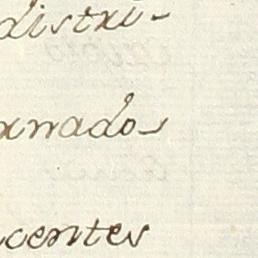 distri-
xnados
centes